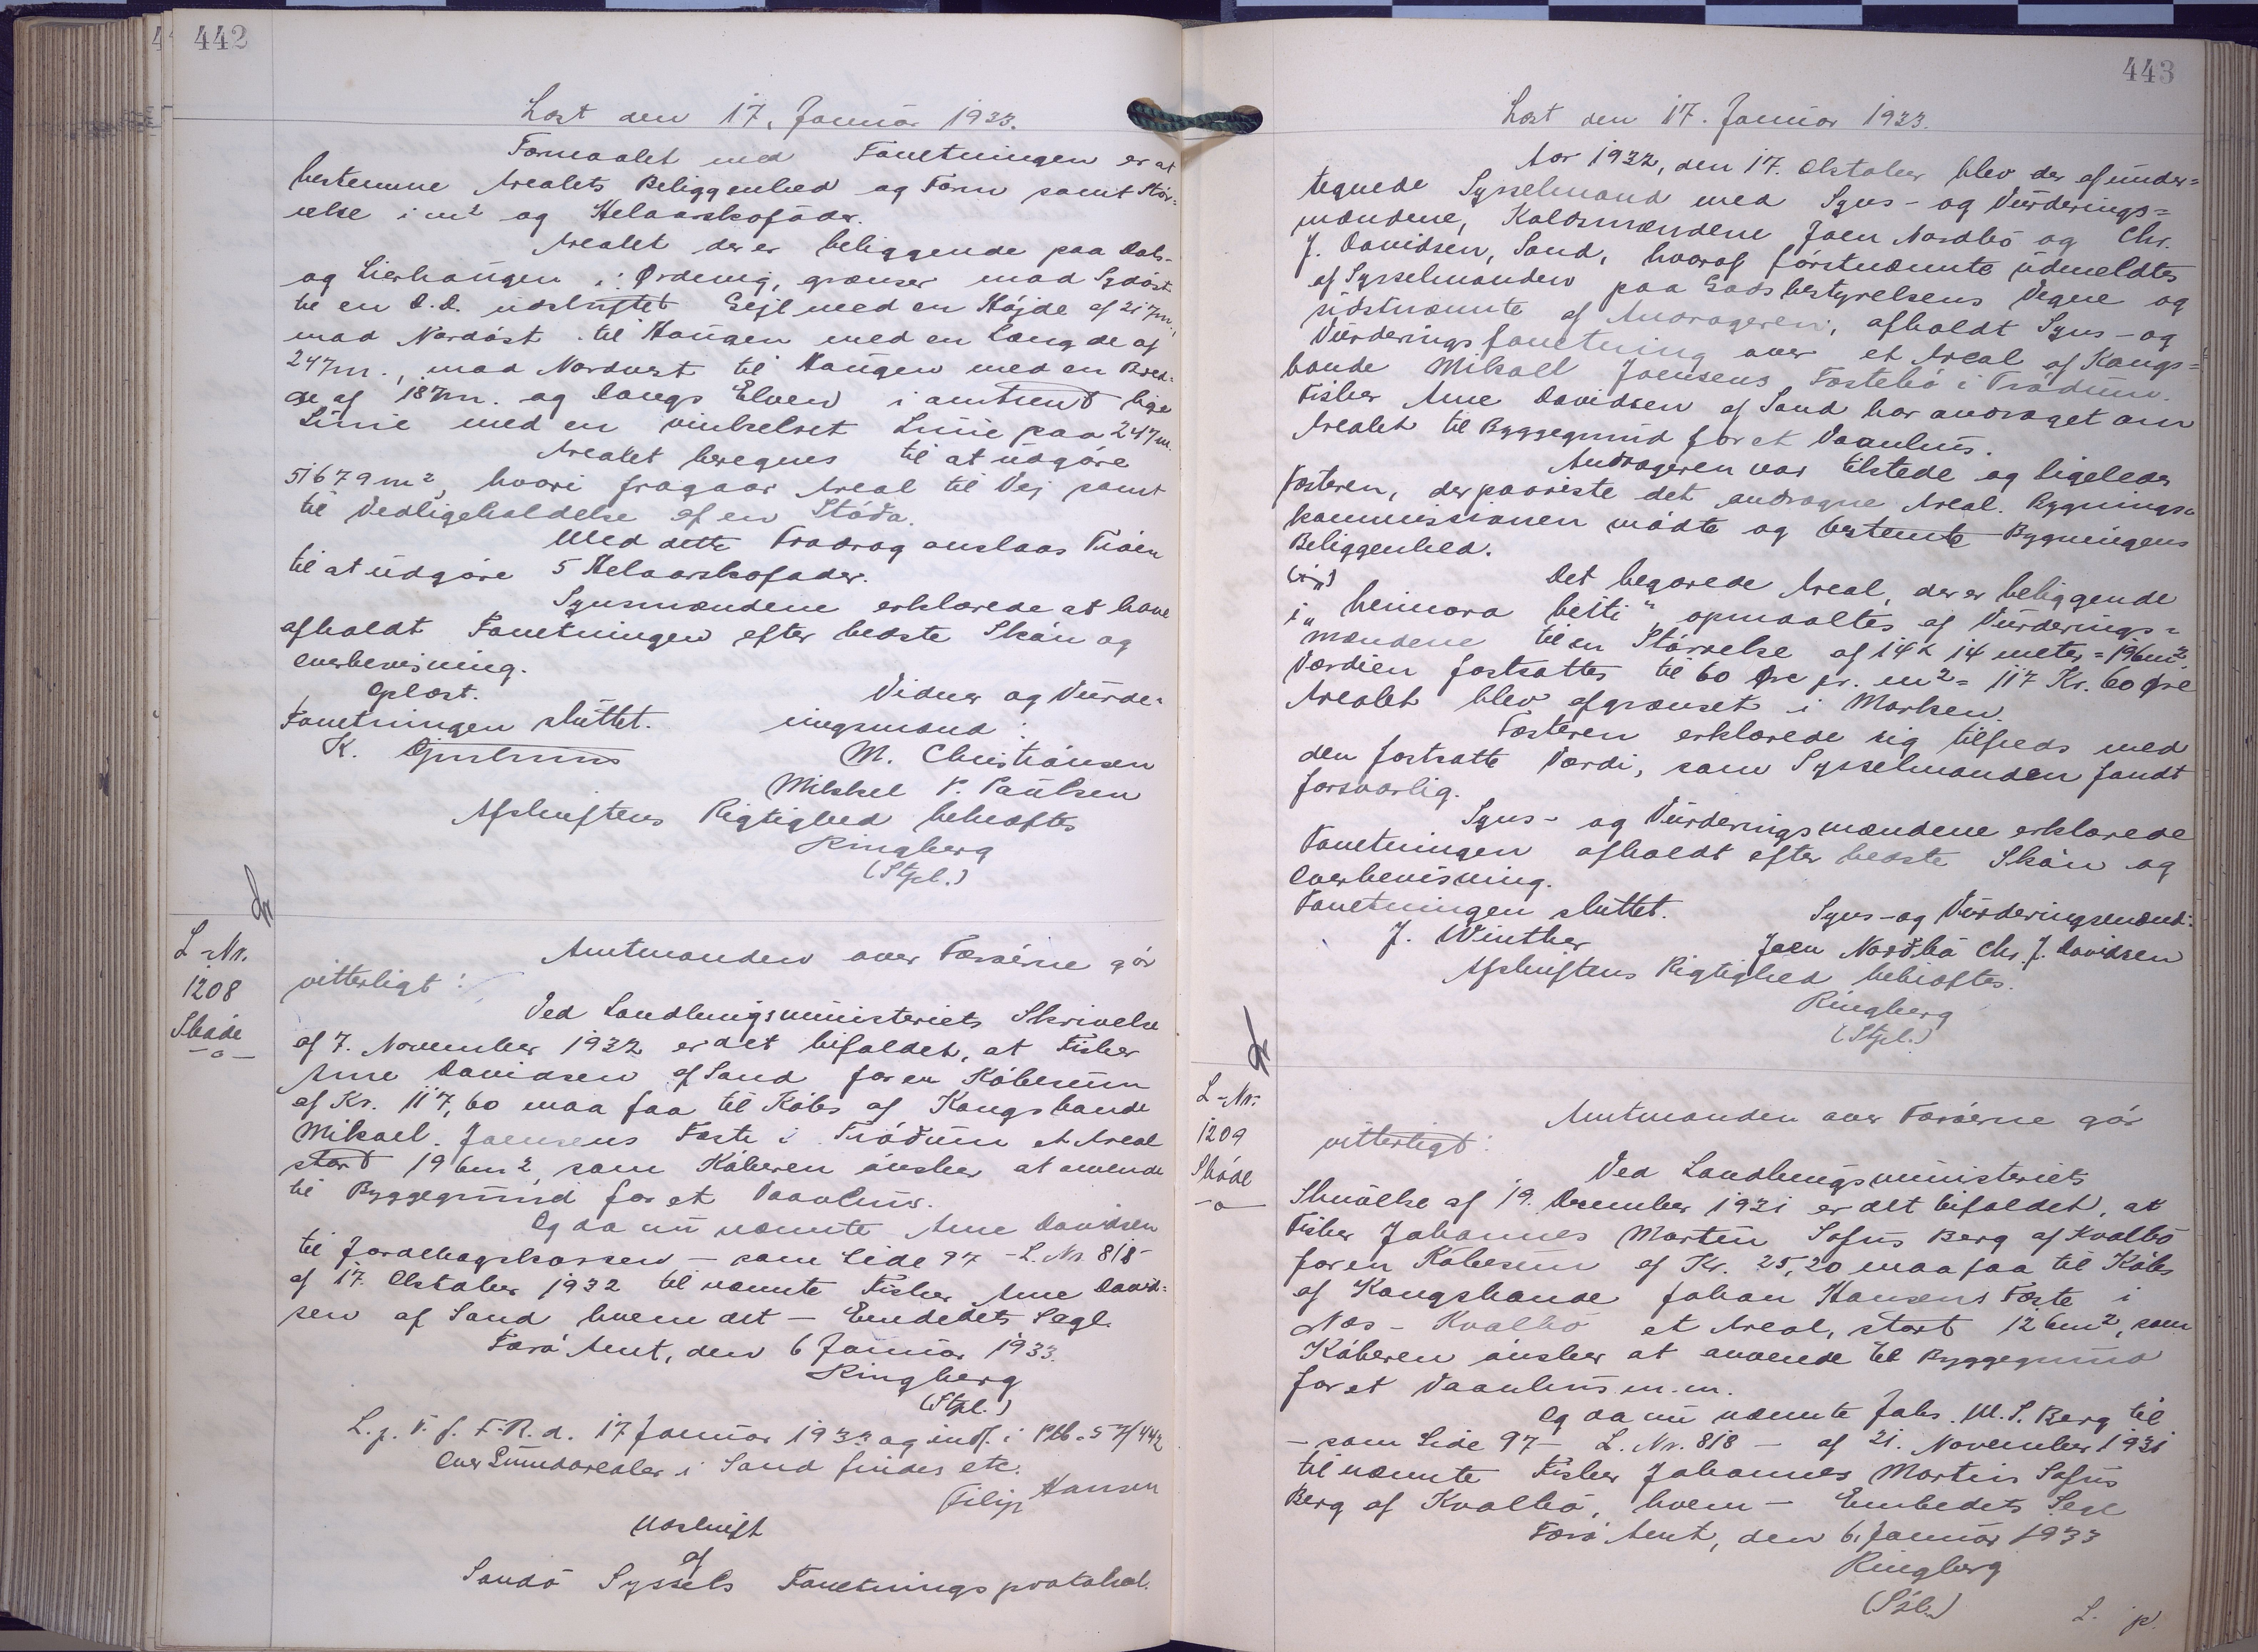 442
Læst den 17. Januar 1933.
Formaalet med Forretningen er at
bestemme Arealets Beliggenhed og Form samt Stör-
relse i m² og Helaarskofóder.
Arealet der er beliggende paa Dals-
og Lierhaugen i Ørdevig, grænser mod Sydöst
til en D.D. udskiftet Gejl med en Højde af 217m.,
mod Nordöst til Haugen med en Længde af
247m., mod Nordvest til Haugen med en Bred-
de af 187m. og langs Elven i omtrent lige
Linie med en vinkelret Linie paa 247m.
Arealet beregnes til at udgöre
51679m², hvori fragaar Areal til Vej samt
til Vedligeholdelse af en Stóða.
Med dette Fradrag anslaas Tröen
til at udgöre 5 Helaarskofoder.
Synsmændene erklærede at have
afholdt Forretningen efter bedste Skön og
Overbevisning.
Oplæst.
Forretningen sluttet.
K. Djurhuus
Vidner og Vurde-
ringsmænd:
M. Christiansen
Mikkel P. Paulsen
Afskriftens Rigtighed bekræftes
Ringberg
(Stpl.)
L-Nr.
1208
Sköde
-o-
Amtmanden over Færöerne gör
vitterligt:
Ved Landbrugsministeriets Skrivelse
af 7. November 1932 er det bifaldet, at Fisker
Arne Davidsen af Sand for en Köbesum
af Kr. 117,60 maa faa til Köbs af Kongsbonde
Mikael Joensens Fæste i Tröðum et Areal
stort 196m², som Köberen önsker at anvende
til Byggegrund for et Vaanhus.
Og da nu nævnte Arne Davidsen
til Jordebogskassen - som Side 97 - L. Nr. 818 -
af 17. Oktober 1932 til nævnte Fisker Arne David-
sen af Sand hvem det - Embedets Segl.
Færö Amt, den 6 Januar 1933.
Ringberg
(Stpl.)
L. p. V. f. F.R. d. 17 Januar 1933 og indf. i Ptb.
Over Grundarealer i Sand findes etc.
Filip Hansen
Udskrift
af
Sandö Syssels Forretningsprotokol.
443
Læst den 17. Januar 1933.
Aar 1932, den 17. Oktober blev der af under-
tegnede Sysselmand med Syns- og Vurderings-
mændene, Kaldsmændene Joen Nordbö og Chr.
J. Davidsen, Sand, hvoraf förstnævnte udmeldtes
af Sysselmanden paa Godsbestyrelsens Vegne og
sidstnævnte af Andrageren, afholdt Syns- og
Vurderingsforretning over et Areal af Kongs-
bonde Mikael Joensens Fæstebö i Tröðum.
Fisker Arne Davidsen af Sand har andraget om
Arealet til Byggegrund for et Vaanhus.
Andrageren var tilstede og ligeledes
Fæsteren, der paaviste det andragne Areal. Bygnings-
kommissionen mödte og bestemte Bygningens
Beliggenhed.
Det begærede Areal, der er beliggende
i „heimara beiti“ opmaaltes af Vurderings-
mændene til en Störrelse af 14 x 14 meter = 196m².
Værdien fastsattes til 60 Øre pr. m² = 117 Kr. 60 Øre
Arealet blev afgrænset i Marken.
Fæsteren erklærede sig tilfreds med
den fastsatte Værdi, som Sysselmanden fandt
forsvarlig.
Syns- og Vurderingsmændene erklærede
Forretningen afholdt efter bedste Skön og
Overbevisning.
Forretningen sluttet.
J. Winther
Syns- og Vurderingsmænd:
Joen Norðbö Chr. J. Davidsen
Afskriftens Rigtighed bekræftes.
Ringberg
(Stpl.)
L-Nr.
1209
Sköde
-o-
Amtmanden over Færöerne gör
vitterligt:
Ved Landbrugsministeriets
Skrivelse af 19. December 1931 er det bifaldet, at
Fisker Johannes Martin Sofus Berg af Kvalbö
for en Köbesum af Kr. 25,20 maa faa til Köbs
af Kongsbonde Johan Hansens Fæste i
Næs - Kvalbö et Areal, stort 126m², som
Köberen önsker at anvende til Byggegrund
for et Vaanhus m.m.
Og da nu nævnte Johs. M. S. Berg til
- som Side 97 - L. Nr. 818 - af 21. November 1931
til nævnte Fisker Johannes Martin Sofus
Berg af Kvalbö, hvem - Embedets Segl
Færö Amt, den 6. Januar 1933
Ringberg
L. p.